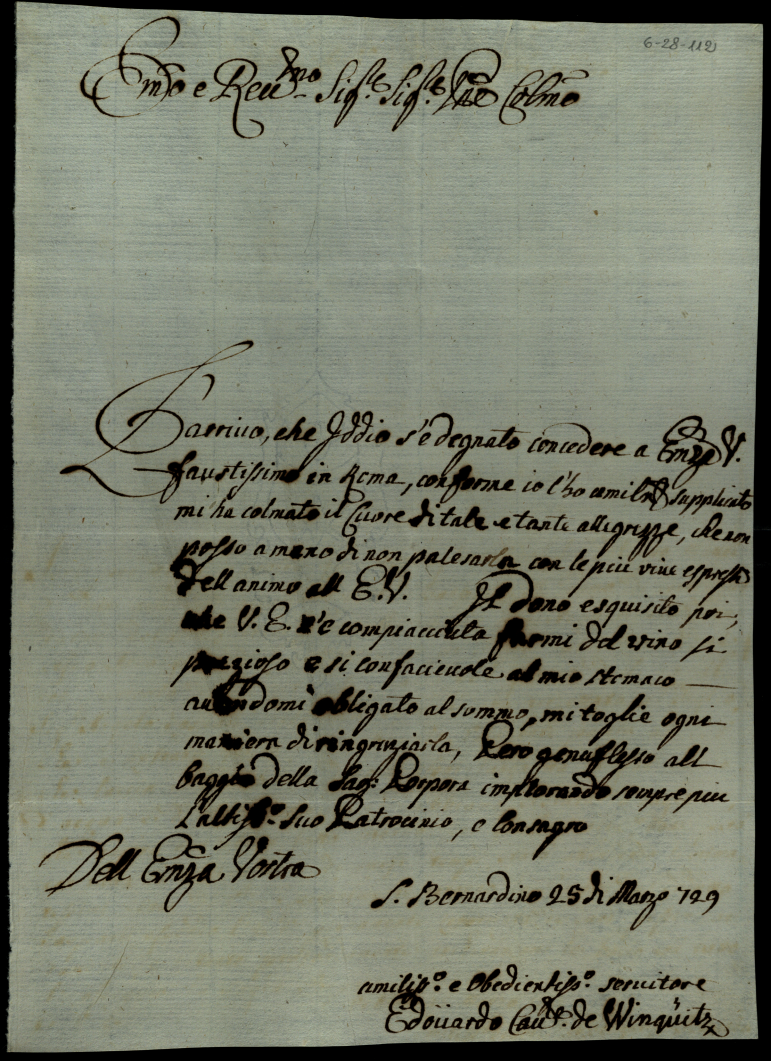 6-28-112
Emo e Reumo Sigre Sigre Pne Colmo
L'arriuo, che Iddio s'è degnato concedere a Emza V.
faustissimo in Roma, conforme io l'ho umilte supplicato
mi ha colmato il Cuore di tale e tante allegrezze, che non
posso a meno di non palesarla con le più viue espressi
dell animo all E.V. Il dono esquisito poi,
che V. E. s'è compiacciuta farmi del vino si
prezioso e si confaceuole al mio stomaco
auendomi obligato al sommo, mi toglie ogni
maniera di ringraziarla, Pero genuflesso all
baggio della Sag: Porpora implorando sempre piu
l'altisso. Suo Patrocinio, e Consagro
Dell Emza Vostra
S. Bernardino 25 di Marzo 729
umilisso. e Obedientisso. seruitore
Edoüardo Caure. de Winqüitz